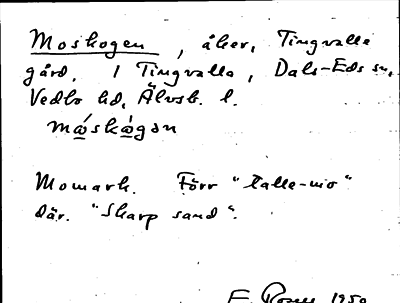 Moskogen, åker, Tingvalla
gård, 1 Tingvalla, Dals-Eds sn,
Vedbo hd, Älvsb. l.
mǻskå̀gən
Momark. Förr "talle-mo"
där. "Skarp sand".
1950